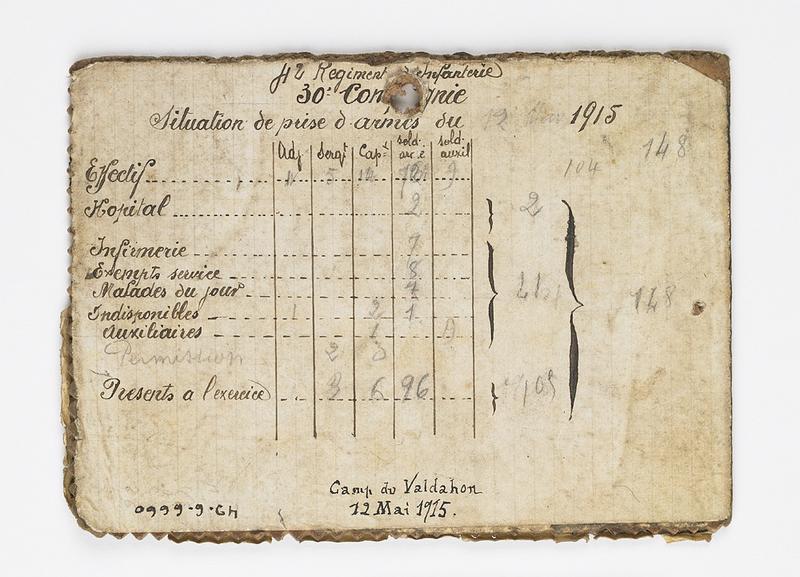 42 Regiment d'Infanterie
30e Compagnie
Situation de prise d'armes du 12 1915
Adj Sergt Capx sold. armé sold. auxil
148
104
Effectif 5 14 9
Hopital 2 2
Infirmerie 7
Exempts service 8
Malades du jour 4
148
Indisponibles 1 2 1
Auxiliaires 1
Permission 2 3
Presents a l'exercice 3 6 96 105
Camp du Valdahon
12 Mai 1915.
0999-9-GH